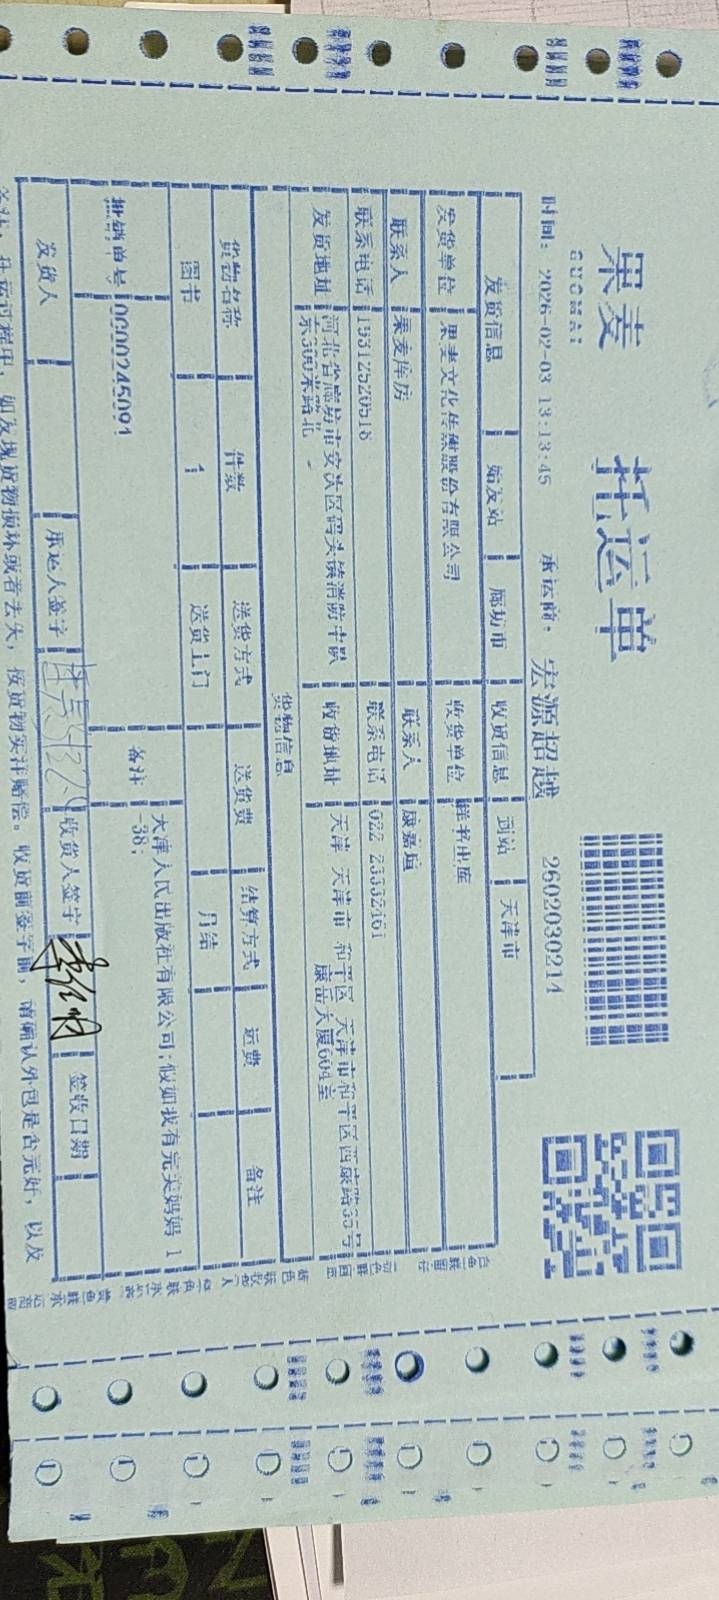 果麦 托运单
GUOMAI
时间: 2026-02-03 13:13:45 承运商: 宏源超越 2602030214
发货信息 始发站 廊坊市 收货信息 到站 天津市
发货单位 果麦文化传媒股份有限公司 收货单位 样书出库
联系人 果麦库房 联系人 康嘉垣
联系电话 15312520518 联系电话 022 23332461
发货地址 河北省廊坊市安次区码头镇消防中队 收货地址 天津 天津市 和平区 天津市和平区西康路35号
东300米路北 康岳大厦604室
货物信息
货物名称 件数 送货方式 送货费 结算方式 运费 备注
图书 1 送货上门 月结
批销单号 0000245091 备注 天津人民出版社有限公司;假如我有完美妈妈 1
-38;
发货人 承运人签字 收货人签字 签收日期
如发现货物损坏或者丢失, 按货物实洋赔偿。收货前签字前, 请确认外包是否完好, 以及